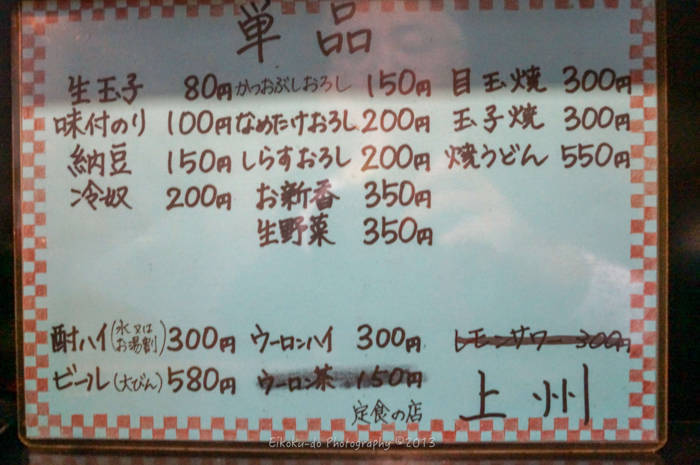 単品
生玉子 80円 かつおぶしおろし 150円 目玉焼 300円
味付のり 100円 なめたけおろし 200円 玉子焼 300円
納豆 150円 しらすおろし 200円 焼うどん 550円
冷奴 200円 お新香 350円
生野菜 350円
酎ハイ(氷又はお湯割) 300円 ウーロンハイ 300円 レモンサワー 300円
ビール(大びん) 580円 ウーロン茶 150円
定食の店 上州
Eikoku-do Photography ©2013